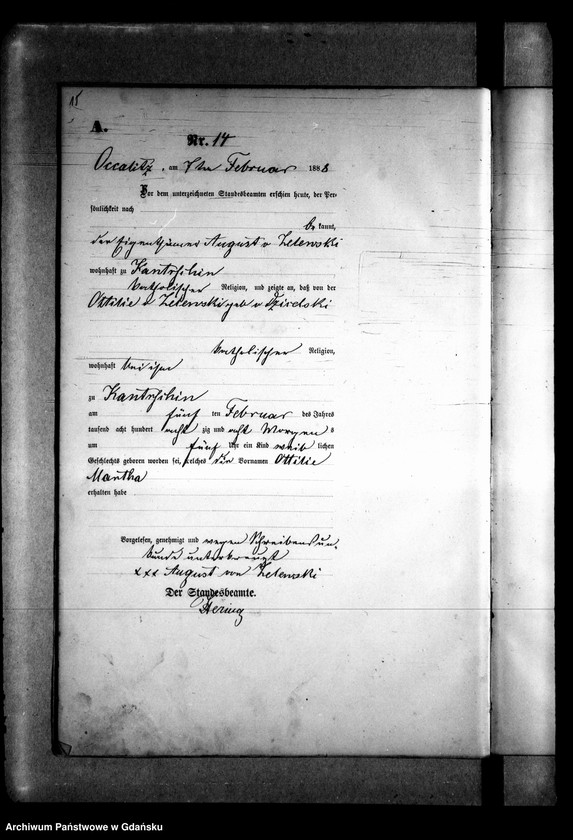 15
A.
Nr. 14
Occalitz, am 7ten Februar 1888
Vor dem unterzeichneten Standesbeamten erschien heute, der Per-
sönlichkeit nach
be kannt,
der Eigenthümer August v Zelewski
wohnhaft zu Kantrschin
katholischer Religion, und zeigte an, daß von der
Ottilie v Zelewski geb v
katholischer Religion,
wohnhaft bei ihm
zu Kantrschin
am fünf ten Februar des Jahres
tausend acht hundert acht zig und acht Morgens
um fünf Uhr ein Kind weib lichen
Geschlechts geboren worden sei, welches die Vornamen Ottilie
Martha
erhalten habe
Vorgelesen, genehmigt und wegen Schreibensun-
kunde unterkreuzt
xxx August von Zelewski
Der Standesbeamte.
Hering
Archiwum Państwowe w Gdańsku